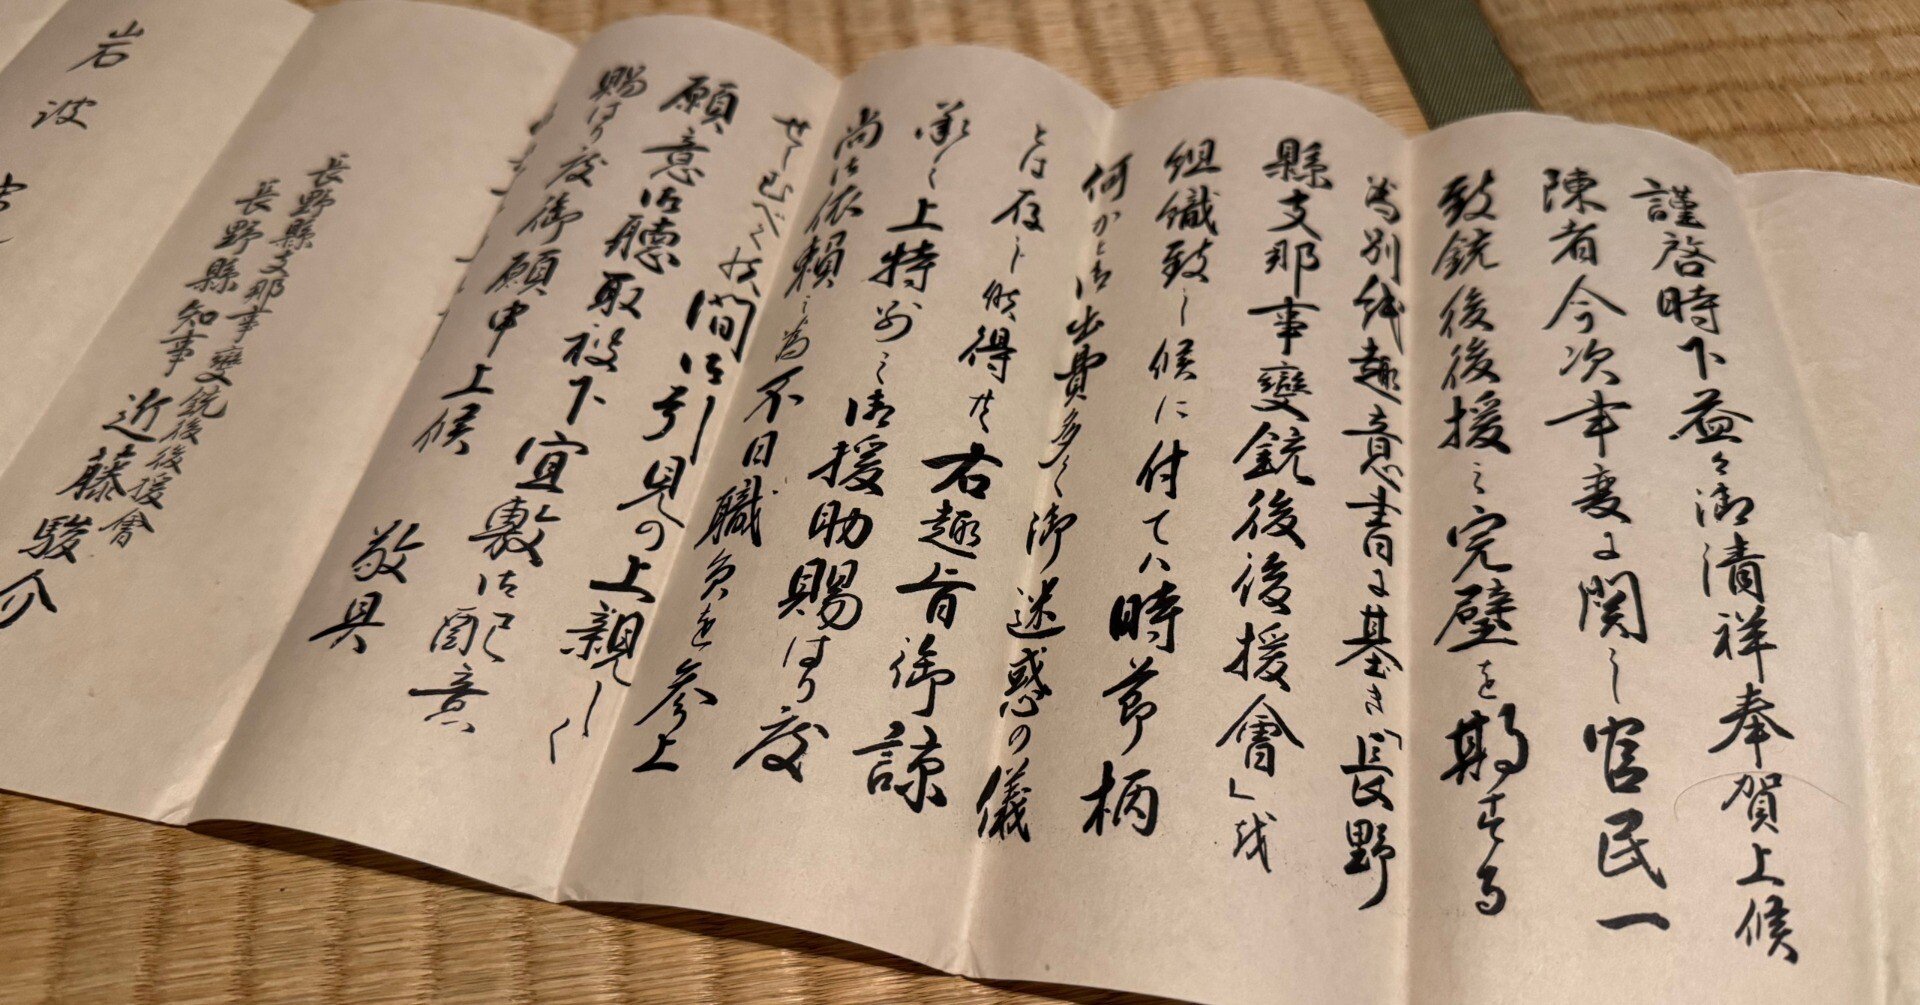 謹啓時下益々御清祥奉賀上候
陳者今次事変に関し官民一
致銃後後援之完璧を期する
為別紙趣意書に基き「長野
縣支那事變銃後後援會」を
組織致し候に付ては時節柄
何かと御出費多く御迷惑の儀
とは存し候得共右趣旨御諒
承之上特別之御援助賜はり度
尚御依頼之為不日職員を参上
せしむべく候間御引見の上親しく
願意御聴取被下宜敷御配意
賜はり度御願申上候
敬具
長野縣支那事變銃後後援會
長野縣知事 近藤駿介
岩波